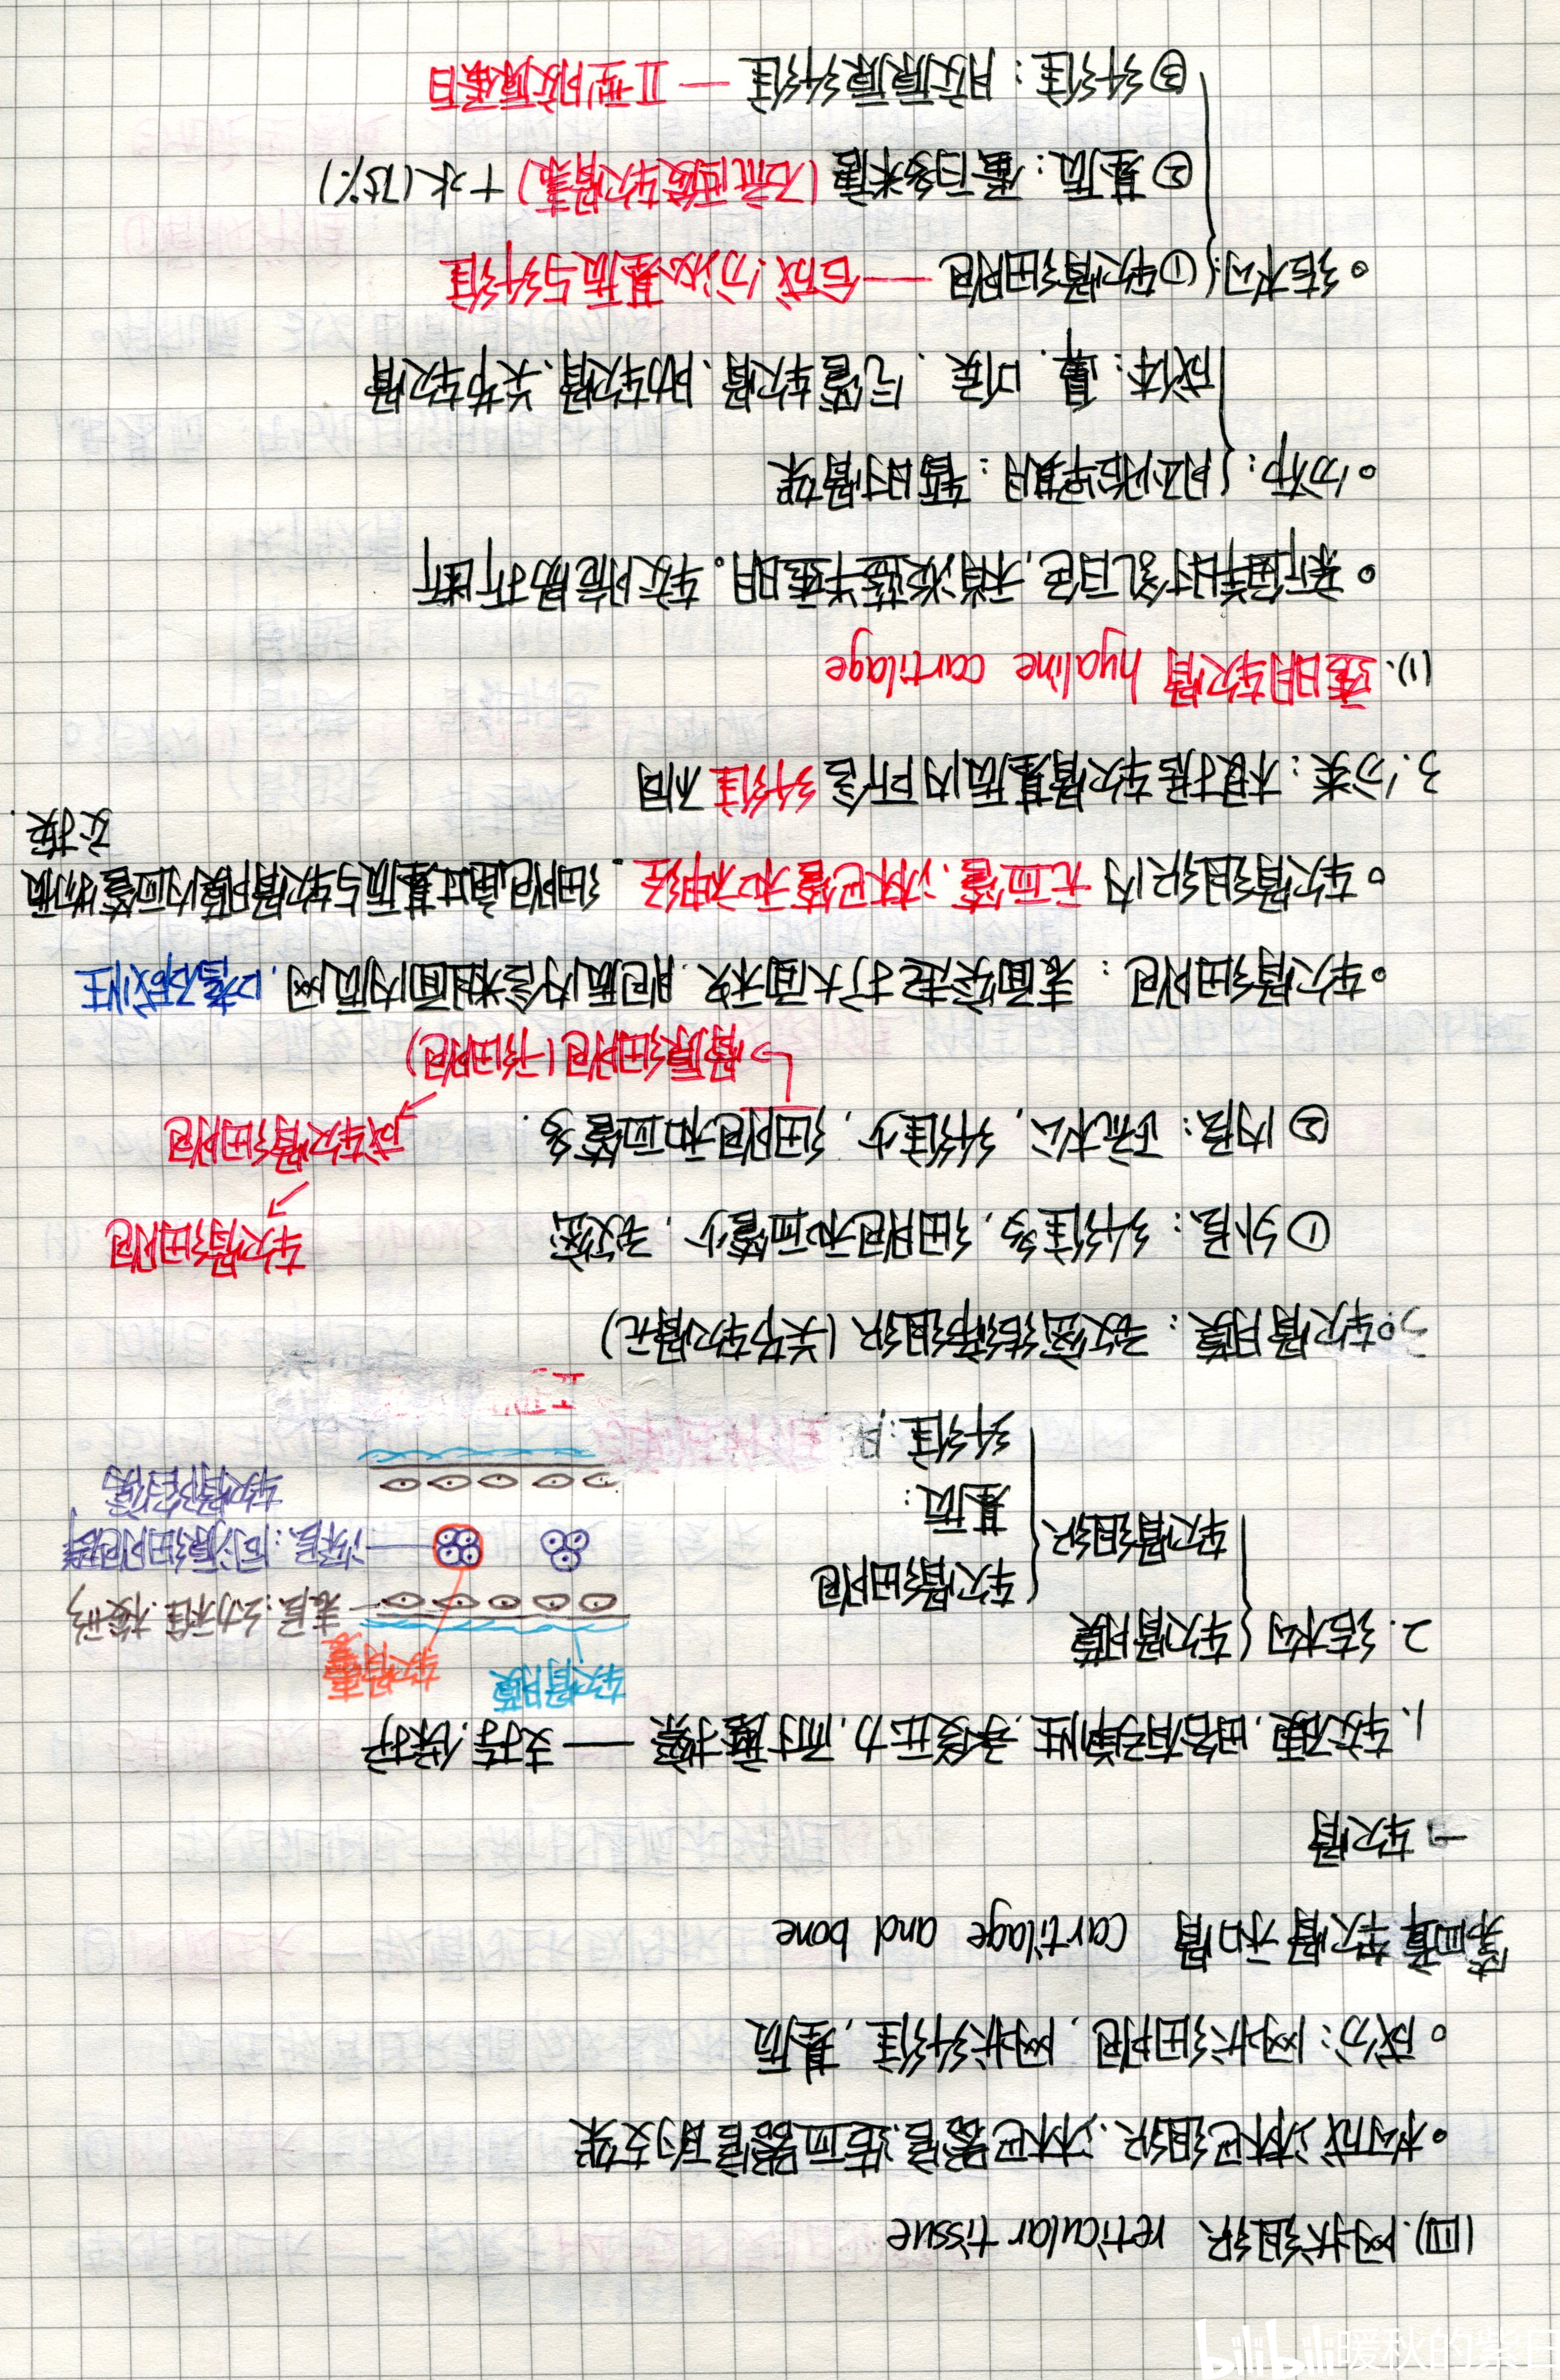 (四). 网状组织 reticular tissue
• 构成淋巴组织、淋巴器官、造血器官的支架
• 成分: 网状细胞, 网状纤维, 基质
第四章 软骨和骨 cartilage and bone
一 软骨
1. 较硬, 略有弹性, 承受压力, 耐摩擦 —— 支持、保护
2. 结构 { 软骨膜
软骨组织 { 软骨细胞
基质:
纤维:
软骨膜 软骨囊
表层: 幼稚、梭形
深层: 同源细胞群
软骨陷窝
软骨膜: 致密结缔组织 (关节软骨无)
① 外层: 纤维多, 细胞和血管少, 致密
② 内层: 疏松, 纤维少, 细胞和血管多.
↳ 骨原细胞 (干细胞)
成软骨细胞
软骨细胞
• 软骨细胞: 表面突起扩大面积. 胞质内含粗面内质网, 嗜碱性
• 软骨组织内无血管、淋巴管和神经. 细胞通过基质与软骨膜内血管物质
交换.
3. 分类: 根据软骨基质内所含纤维不同
(1). 透明软骨 hyaline cartilage
• 新鲜时乳白色, 稍淡蓝半透明。较脆易折断
• 分布: { 胚胎早期: 暂时骨架
成体: 鼻、喉、气管软骨、肋软骨、关节软骨
• 结构: { ① 软骨细胞 —— 合成、分泌基质与纤维
② 基质: 蛋白多糖 (硫酸软骨素) + 水 (75%)
③ 纤维: 胶原原纤维 —— II型胶原蛋白
bilibili 暖秋的紫日